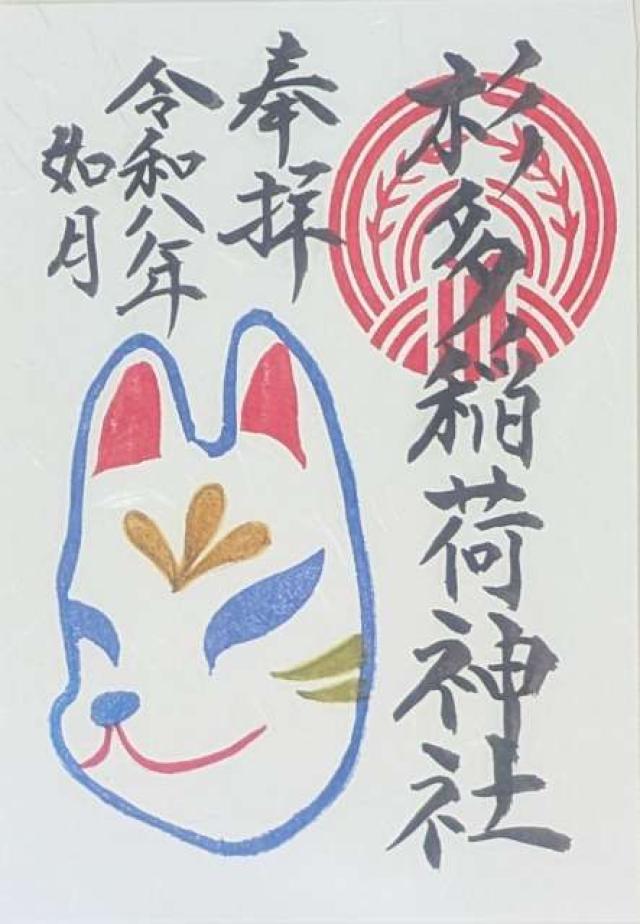 杉多稲荷神社
奉拝
令和八年
如月